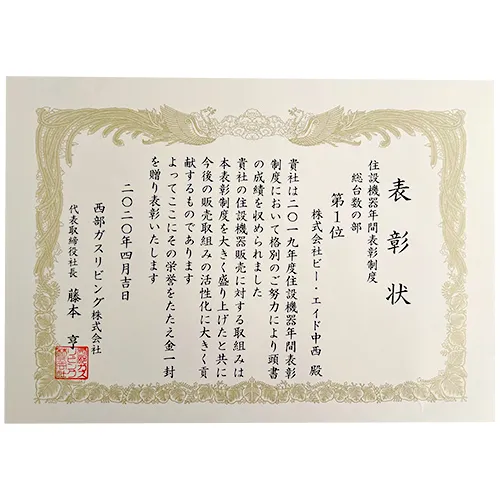 表彰状
住設機器年間表彰制度
総台数の部
第1位
株式会社ビー・エイド中西 殿
貴社は二〇一九年度住設機器年間表彰
制度において格別のご努力により頭書
の成績を収められました
貴社の住設機器販売に対する取組みは
本表彰制度を大きく盛り上げたと共に
今後の販売取組みの活性化に大きく貢
献するものであります
よってここにその栄誉をたたえ金一封
を贈り表彰いたします
二〇二〇年四月吉日
西部ガスリビング株式会社
代表取締役社長 藤本 亨